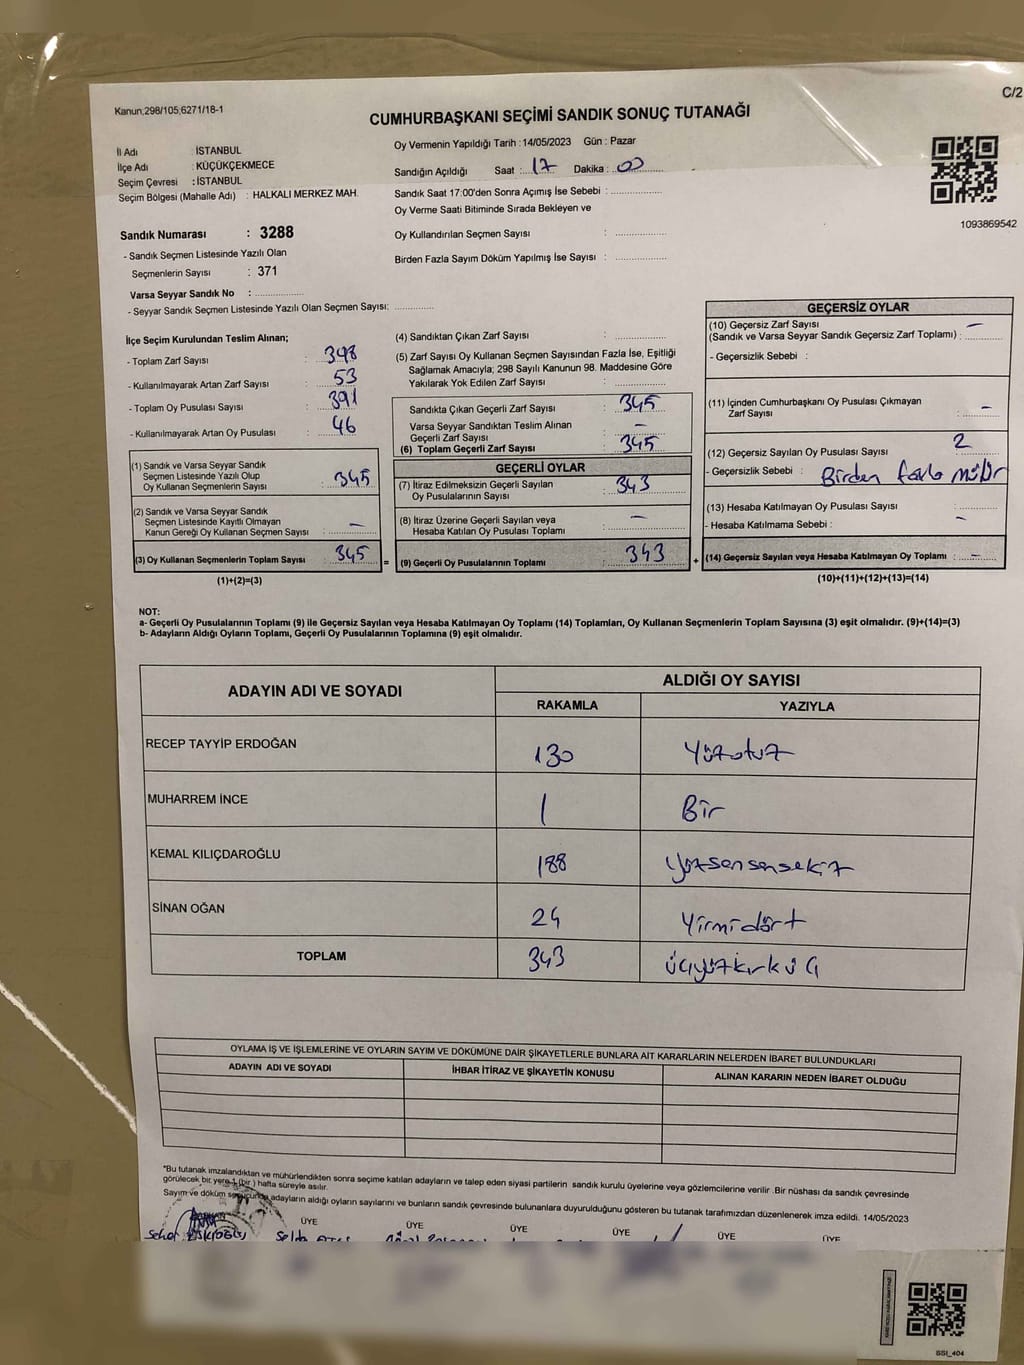 Kanun;298/105;6271/18-1
C/2
CUMHURBAŞKANI SEÇİMİ SANDIK SONUÇ TUTANAĞI
İl Adı : İSTANBUL
İlçe Adı : KÜÇÜKÇEKMECE
Seçim Çevresi : İSTANBUL
Seçim Bölgesi (Mahalle Adı) : HALKALI MERKEZ MAH.
Oy Vermenin Yapıldığı Tarih : 14/05/2023 Gün : Pazar
Sandığın Açıldığı Saat : 17 Dakika : 00
Sandık Saat 17:00'den Sonra Açımış İse Sebebi :
Oy Verme Saati Bitiminde Sırada Bekleyen ve
Oy Kullandırılan Seçmen Sayısı :
Birden Fazla Sayım Döküm Yapılmış İse Sayısı :
1093869542
Sandık Numarası : 3288
- Sandık Seçmen Listesinde Yazılı Olan
Seçmenlerin Sayısı : 371
Varsa Seyyar Sandık No :
- Seyyar Sandık Seçmen Listesinde Yazılı Olan Seçmen Sayısı:
İlçe Seçim Kurulundan Teslim Alınan;
- Toplam Zarf Sayısı : 398
- Kullanılmayarak Artan Zarf Sayısı : 53
- Toplam Oy Pusulası Sayısı : 391
- Kullanılmayarak Artan Oy Pusulası : 46
(1) Sandık ve Varsa Seyyar Sandık
Seçmen Listesinde Yazılı Olup
Oy Kullanan Seçmenlerin Sayısı : 345
(2) Sandık ve Varsa Seyyar Sandık
Seçmen Listesinde Kayıtlı Olmayan
Kanun Gereği Oy Kullanan Seçmen Sayısı : –
(3) Oy Kullanan Seçmenlerin Toplam Sayısı : 345
(1)+(2)=(3)
(4) Sandıktan Çıkan Zarf Sayısı :
(5) Zarf Sayısı Oy Kullanan Seçmen Sayısından Fazla İse, Eşitliği
Sağlamak Amacıyla; 298 Sayılı Kanunun 98. Maddesine Göre
Yakılarak Yok Edilen Zarf Sayısı :
Sandıkta Çıkan Geçerli Zarf Sayısı : 345
Varsa Seyyar Sandıktan Teslim Alınan
Geçerli Zarf Sayısı : –
(6) Toplam Geçerli Zarf Sayısı : 345
GEÇERLİ OYLAR
(7) İtiraz Edilmeksizin Geçerli Sayılan
Oy Pusulalarının Sayısı : 343
(8) İtiraz Üzerine Geçerli Sayılan veya
Hesaba Katılan Oy Pusulası Toplamı : –
= (9) Geçerli Oy Pusulalarının Toplamı : 343 +
GEÇERSİZ OYLAR
(10) Geçersiz Zarf Sayısı –
(Sandık ve Varsa Seyyar Sandık Geçersiz Zarf Toplamı) :
- Geçersizlik Sebebi :
(11) İçinden Cumhurbaşkanı Oy Pusulası Çıkmayan
Zarf Sayısı : –
(12) Geçersiz Sayılan Oy Pusulası Sayısı : 2
- Geçersizlik Sebebi : Birden fazla mühür
(13) Hesaba Katılmayan Oy Pusulası Sayısı :
- Hesaba Katılmama Sebebi : –
(14) Geçersiz Sayılan veya Hesaba Katılmayan Oy Toplamı : –
(10)+(11)+(12)+(13)=(14)
NOT:
a- Geçerli Oy Pusulalarının Toplamı (9) ile Geçersiz Sayılan veya Hesaba Katılmayan Oy Toplamı (14) Toplamları, Oy Kullanan Seçmenlerin Toplam Sayısına (3) eşit olmalıdır. (9)+(14)=(3)
b- Adayların Aldığı Oyların Toplamı, Geçerli Oy Pusulalarının Toplamına (9) eşit olmalıdır.
ADAYIN ADI VE SOYADI ALDIĞI OY SAYISI
RAKAMLA YAZIYLA
RECEP TAYYİP ERDOĞAN 130 Yüzotuz
MUHARREM İNCE 1 Bir
KEMAL KILIÇDAROĞLU 188 Yüzsensensekiz
SİNAN OĞAN 24 Yirmidört
TOPLAM 343 üçyüzkırküç
OYLAMA İŞ VE İŞLEMLERİNE VE OYLARIN SAYIM VE DÖKÜMÜNE DAİR ŞİKAYETLERLE BUNLARA AİT KARARLARIN NELERDEN İBARET BULUNDUKLARI
ADAYIN ADI VE SOYADI İHBAR İTİRAZ VE ŞİKAYETİN KONUSU ALINAN KARARIN NEDEN İBARET OLDUĞU
*Bu tutanak imzalandıktan ve mühürlendikten sonra seçime katılan adayların ve talep eden siyasi partilerin sandık kurulu üyelerine veya gözlemcilerine verilir .Bir nüshası da sandık çevresinde
görülecek bir yere 1 (bir ) hafta süreyle asılır.
Sayım ve döküm sonucunda adayların aldığı oyların sayılarını ve bunların sandık çevresinde bulunanlara duyurulduğunu gösteren bu tutanak tarafımızdan düzenlenerek imza edildi. 14/05/2023
ÜYE ÜYE ÜYE ÜYE ÜYE ÜYE
SSI_404